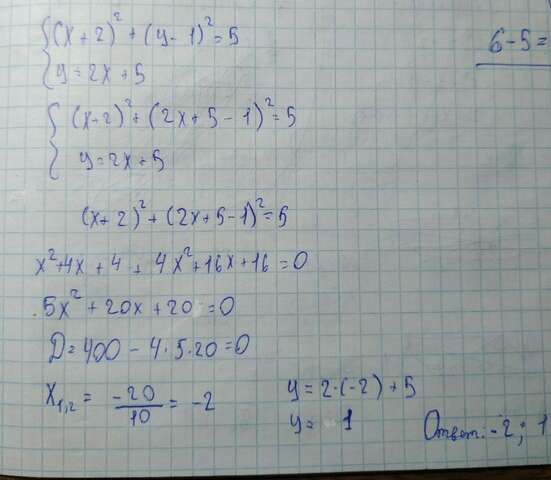 (x+2)²+(y-1)²=5
6-5=
y=2x+5
(x-2)²+(2x+5-1)²=5
y=2x+5
(x+2)²+(2x+5-1)²=5
x²+4x+4+4x²+16x+16=0
5x²+20x+20=0
D=400-4·5·20=0
x₁,₂=-20/10=-2
y=2·(-2)+5
y=1
Ответ:-2;1